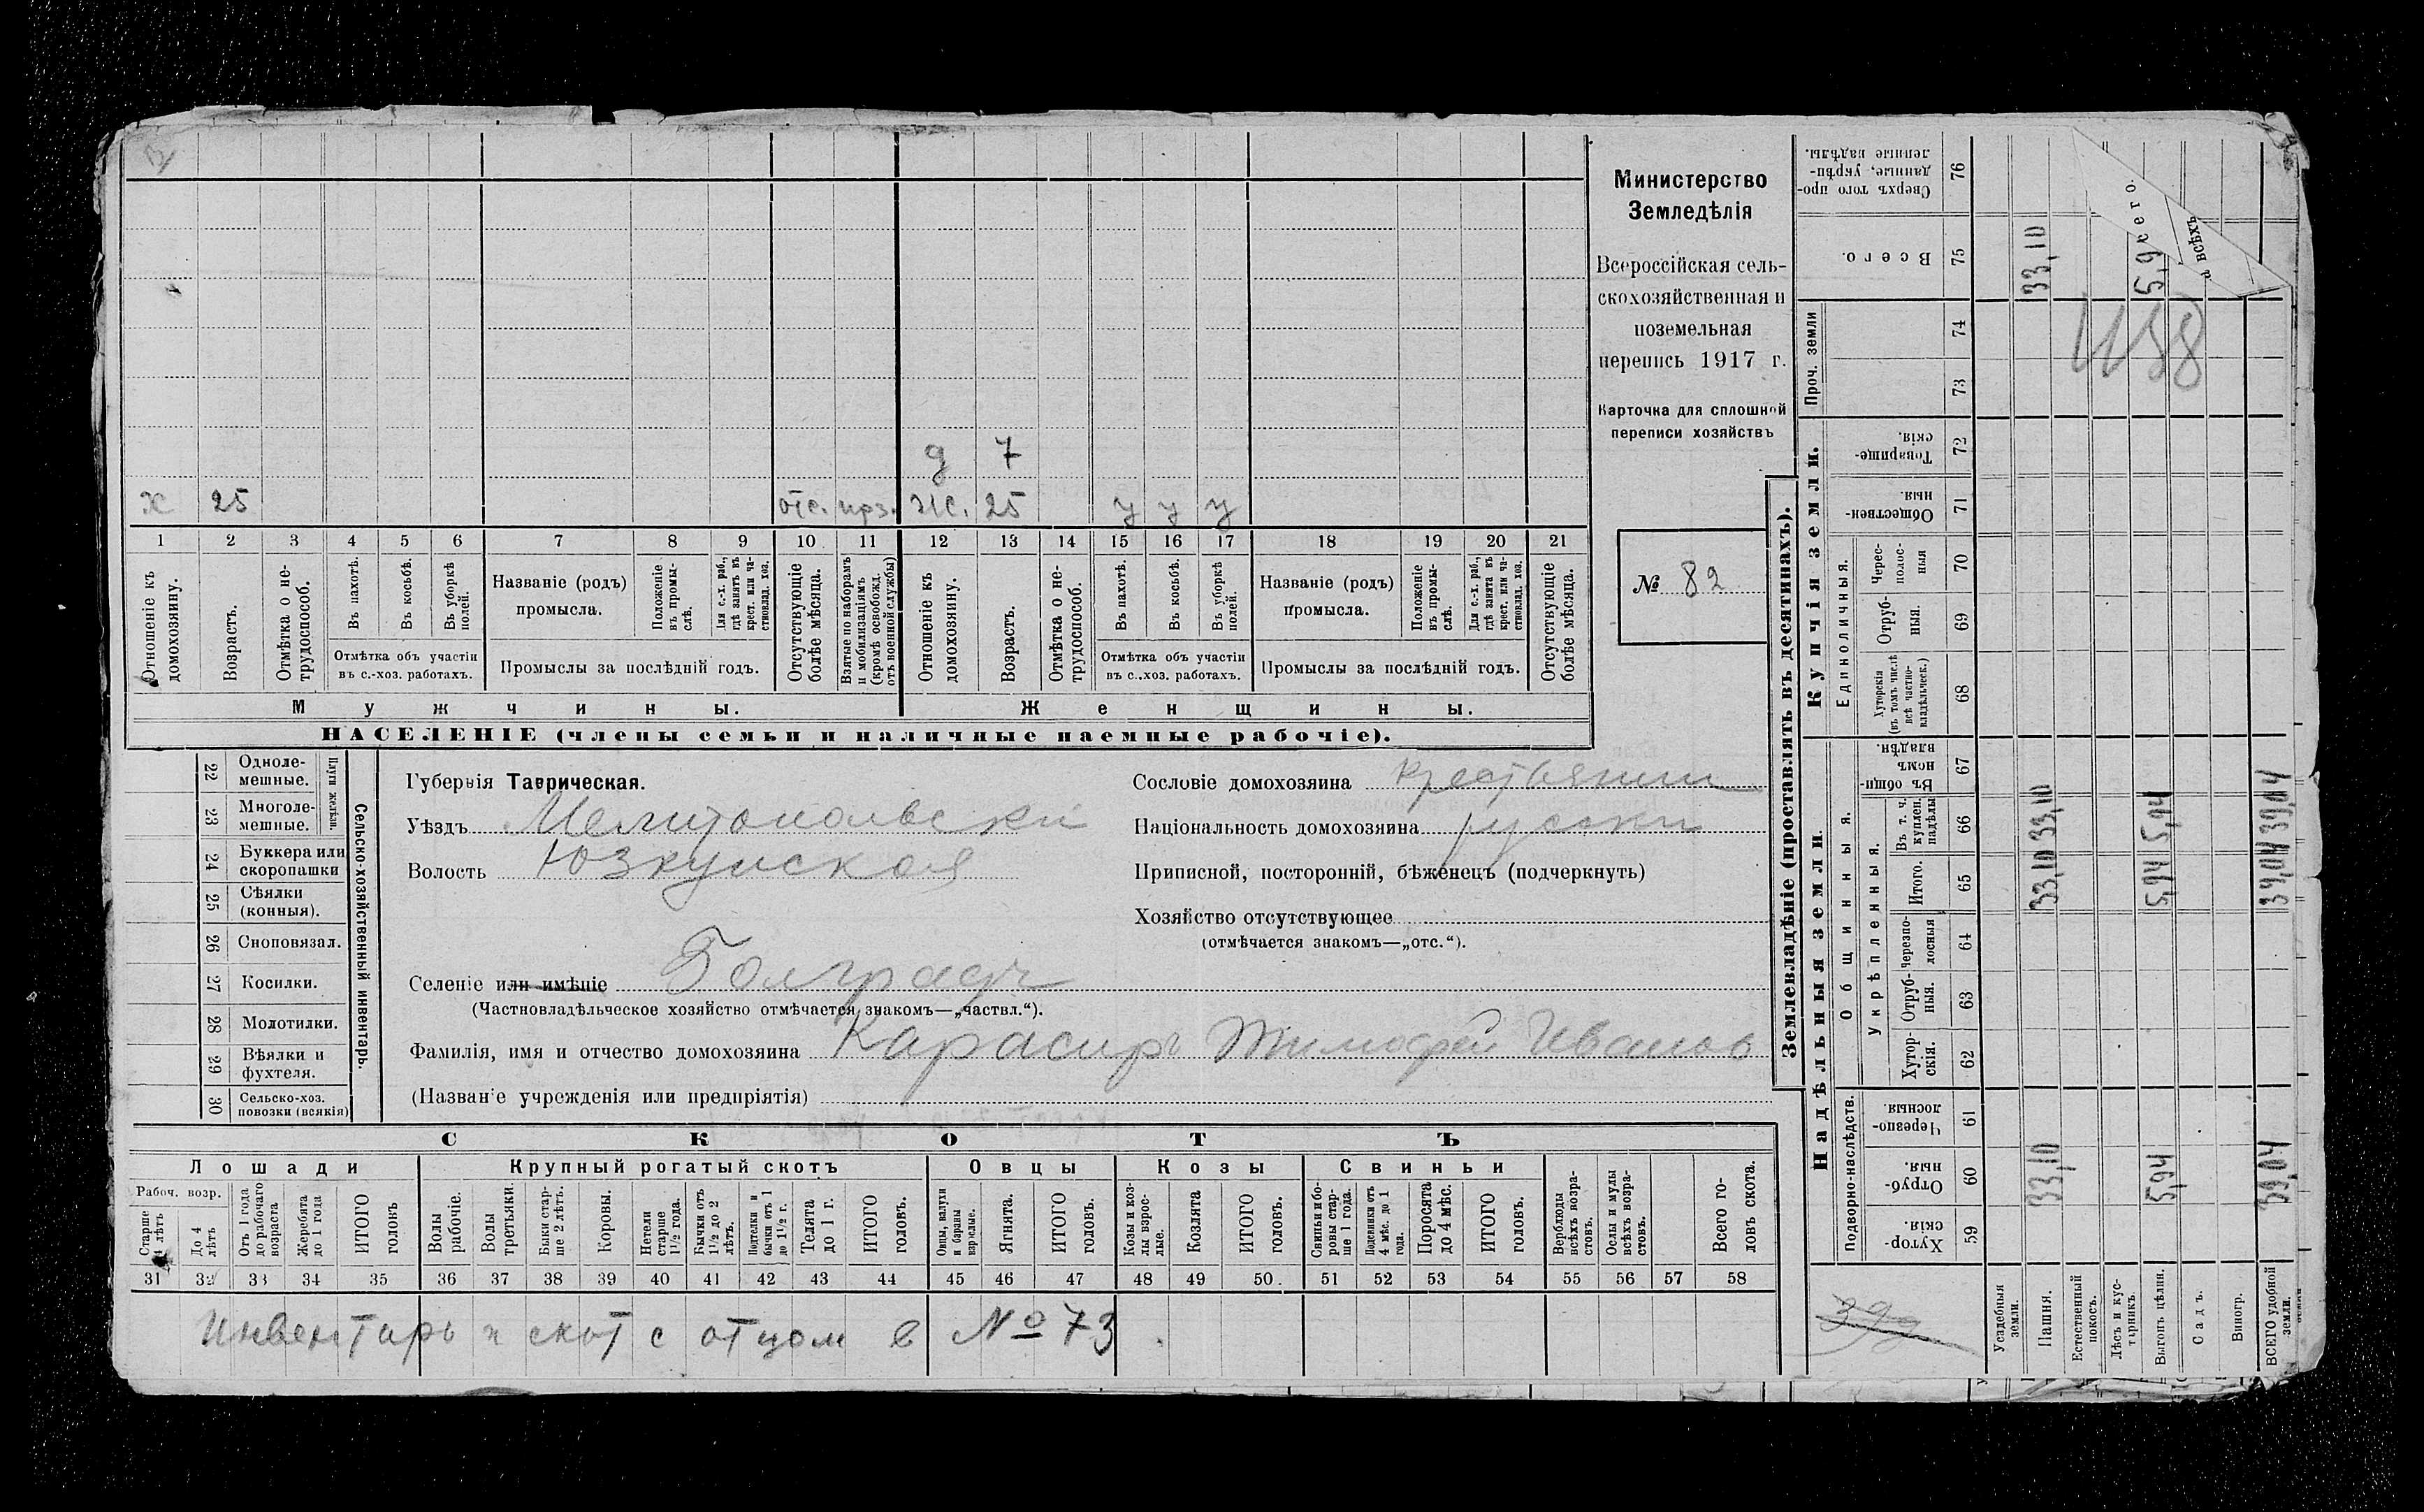 д 7
х 25 отс. прз. ж. 25 у у у
1 2 3 4 5 6 7 8 9 10 11 12 13 14 15 16 17 18 19 20 21
Отношеніе къ домохозяину.
Возрастъ.
Отмѣтка о не-трудоспособ.
Въ пахотѣ.
Въ косьбѣ.
Въ уборкѣ полей.
Отмѣтка объ участіи
въ с.-хоз. работахъ.
Названіе (родъ)
промысла.
Положеніе въ промы-слѣ.
Для с.-х. раб., гдѣ занятъ въ крест. или ча-стновлад. хоз.
Промыслы за послѣдній годъ.
Отсутствующіе болѣе мѣсяца.
Взятые по наборамъ и мобилизаціямъ (кромѣ освобожд. отъ военной службы)
Отношеніе къ домохозяину.
Возрастъ.
Отмѣтка о не-трудоспособ.
Въ пахотѣ.
Въ косьбѣ.
Въ уборкѣ полей.
Отмѣтка объ участіи
въ с..хоз. работахъ.
Названіе (родъ)
промысла.
Положеніе въ промы-слѣ.
Для с.-х. раб., гдѣ занята въ крест. или ча-стновлад. хоз.
Промыслы за послѣдній годъ.
Отсутствующіе болѣе мѣсяца.
Мужчины. Женщины.
НАСЕЛЕНІЕ (члены семьи и наличные наемные рабочіе).
Министерство
Земледѣлія
Всероссійская сель-
скохозяйственная и
поземельная
перепись 1917 г.
Карточка для сплошной
переписи хозяйствъ
№ 82
Сельско-хозяйственный инвентарь.
Плуги желѣзн.
22 Одноле-
мешные.
23 Многоле-
мешные.
24 Буккера или
скоропашки
25 Сѣялки
(конныя).
26 Сноповязал.
27 Косилки.
28 Молотилки.
29 Вѣялки и
фухтеля.
30 Сельско-хоз.
повозки (всякія)
Губернія Таврическая.
Уѣздъ Мелитопольски
Волость Юзкуйская
Селеніе или имѣніе Болградъ
(Частновладѣльческое хозяйство отмѣчается знакомъ—„частвл.“).
Фамилія, имя и отчество домохозяина Карасиръ Тимофей Иванов
(Названіе учрежденія или предпріятія)
Сословіе домохозяина крестьянин
Національность домохозяина руски
Приписной, посторонній, бѣженецъ (подчеркнуть)
Хозяйство отсутствующее
(отмѣчается знакомъ—„отс.“).
СКОТЪ
Лошади Крупный рогатый скотъ Овцы Козы Свиньи
Рабоч. возр.
Старше 4 лѣтъ
До 4 лѣтъ
Отъ 1 года до рабочаго возраста
Жеребята до 1 года
ИТОГО головъ
Волы рабочіе.
Волы третьяки.
Быки стар-ше 2 лѣтъ.
Коровы.
Нетели старше 1½ года.
Бычки отъ 1½ до 2 лѣтъ.
Подтелки и бычки отъ 1 до 1½ г.
Телята до 1 г.
ИТОГО головъ.
Овцы, валухи и бараны взрослые.
Ягнята.
ИТОГО головъ.
Козы и коз-лы взрос-лые.
Козлята
ИТОГО головъ.
Свиньи и бо-ровы стар-ше 1 года.
Подсвинки отъ 4 мѣс. до 1 года.
Поросята до 4 мѣс.
ИТОГО головъ.
Верблюды всѣхъ возра-стовъ.
Ослы и мулы всѣхъ возра-стовъ.
Всего го-ловъ скота.
31 32 33 34 35 36 37 38 39 40 41 42 43 44 45 46 47 48 49 50. 51 52 53 54 55 56 57 58
Инвентарь и скот с отцом в № 73.
Землевладѣніе (проставлять въ десятинахъ).
Надѣльныя земли. Купчія земли. Проч. земли
Подворно-наслѣдств.
Общинныя.
Укрѣпленныя.
Единоличныя.
Хутор-скія. 59
Отруб-ныя. 60
Черезпо-лосныя. 61
Хутор-скія. 62
Отруб-ныя. 63
Черезпо-лосныя 64
Итого. 65
Въ т. ч. куплен. надѣлы 66
Въ общин-номъ владѣн. 67
Хуторскія (въ томъ числѣ всѣ частно-владѣльческ.) 68
Отруб-ныя. 69
Черес-полос-ныя 70
Обществен-ныя. 71
Товарище-скія. 72
73
74
Всего. 75
Сверхъ того про-данные, укрѣп-ленные надѣлы. 76
Усадебныя земли.
Пашня. 33,10 33,10 33,10 33,10
Естественный покосъ.
Лѣсъ и кус-тарникъ.
Выгонъ цѣлин. 5,94 5,94 5,94 5,9
Садъ.
Виногр.
ВСЕГО удобной земли. 39,04 39,04 39,04
всего.
и всѣхъ